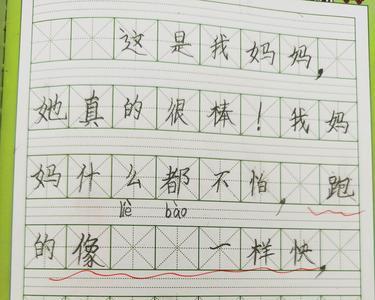 这是我妈妈,
她真的很棒!我妈
妈什么都不怕,跑
liè bào
的像 一样快,